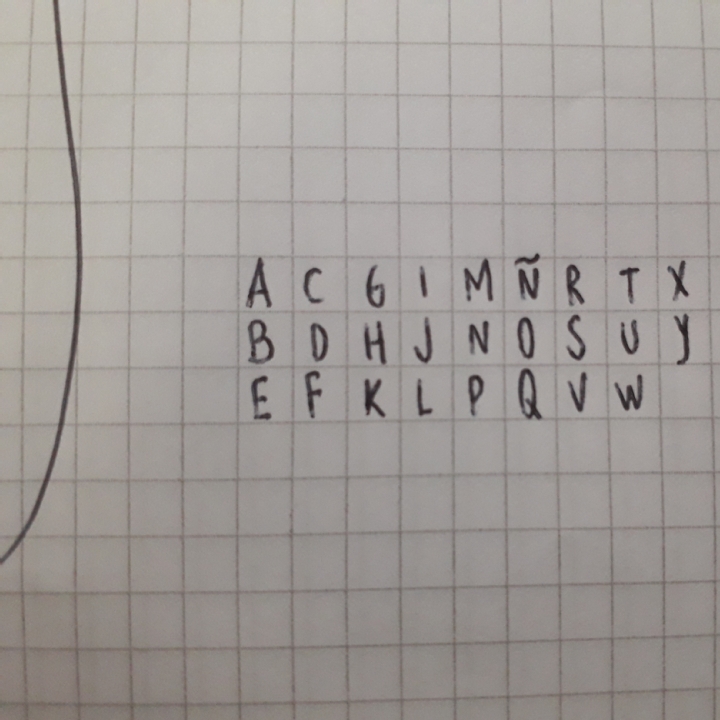 A C G I M Ñ R T X
B D H J N O S U Y
E F K L P Q V W